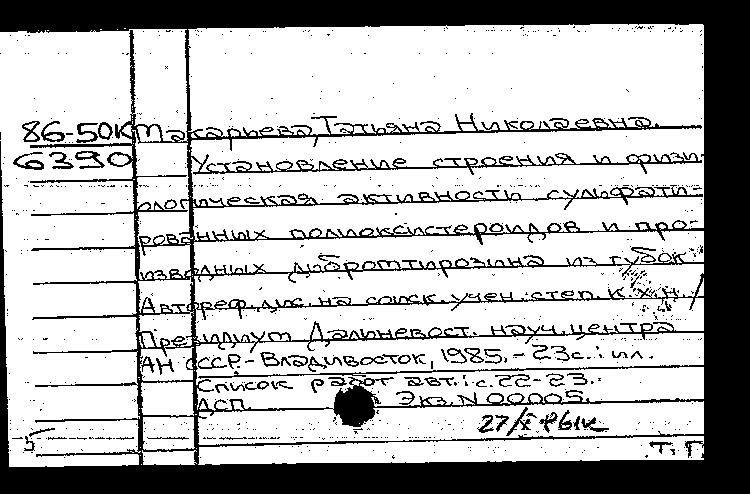 86-50к Макарьева, Татьяна Николаевна.
6390 Установление строения и физи-
ологическая активность сульфати-
рованных полиоксистероидов и про-
изводных дибромтирозина из губок
Автореф. дис. на соиск. учен. степ. к. х. н. /
Президиум Дальневост. науч. центра
АН СССР. - Владивосток, 1985. - 23с.: ил.
Список работ авт.: с. 22-23.
ДСП. Экз. N 00005.
27/X
5
Т. П